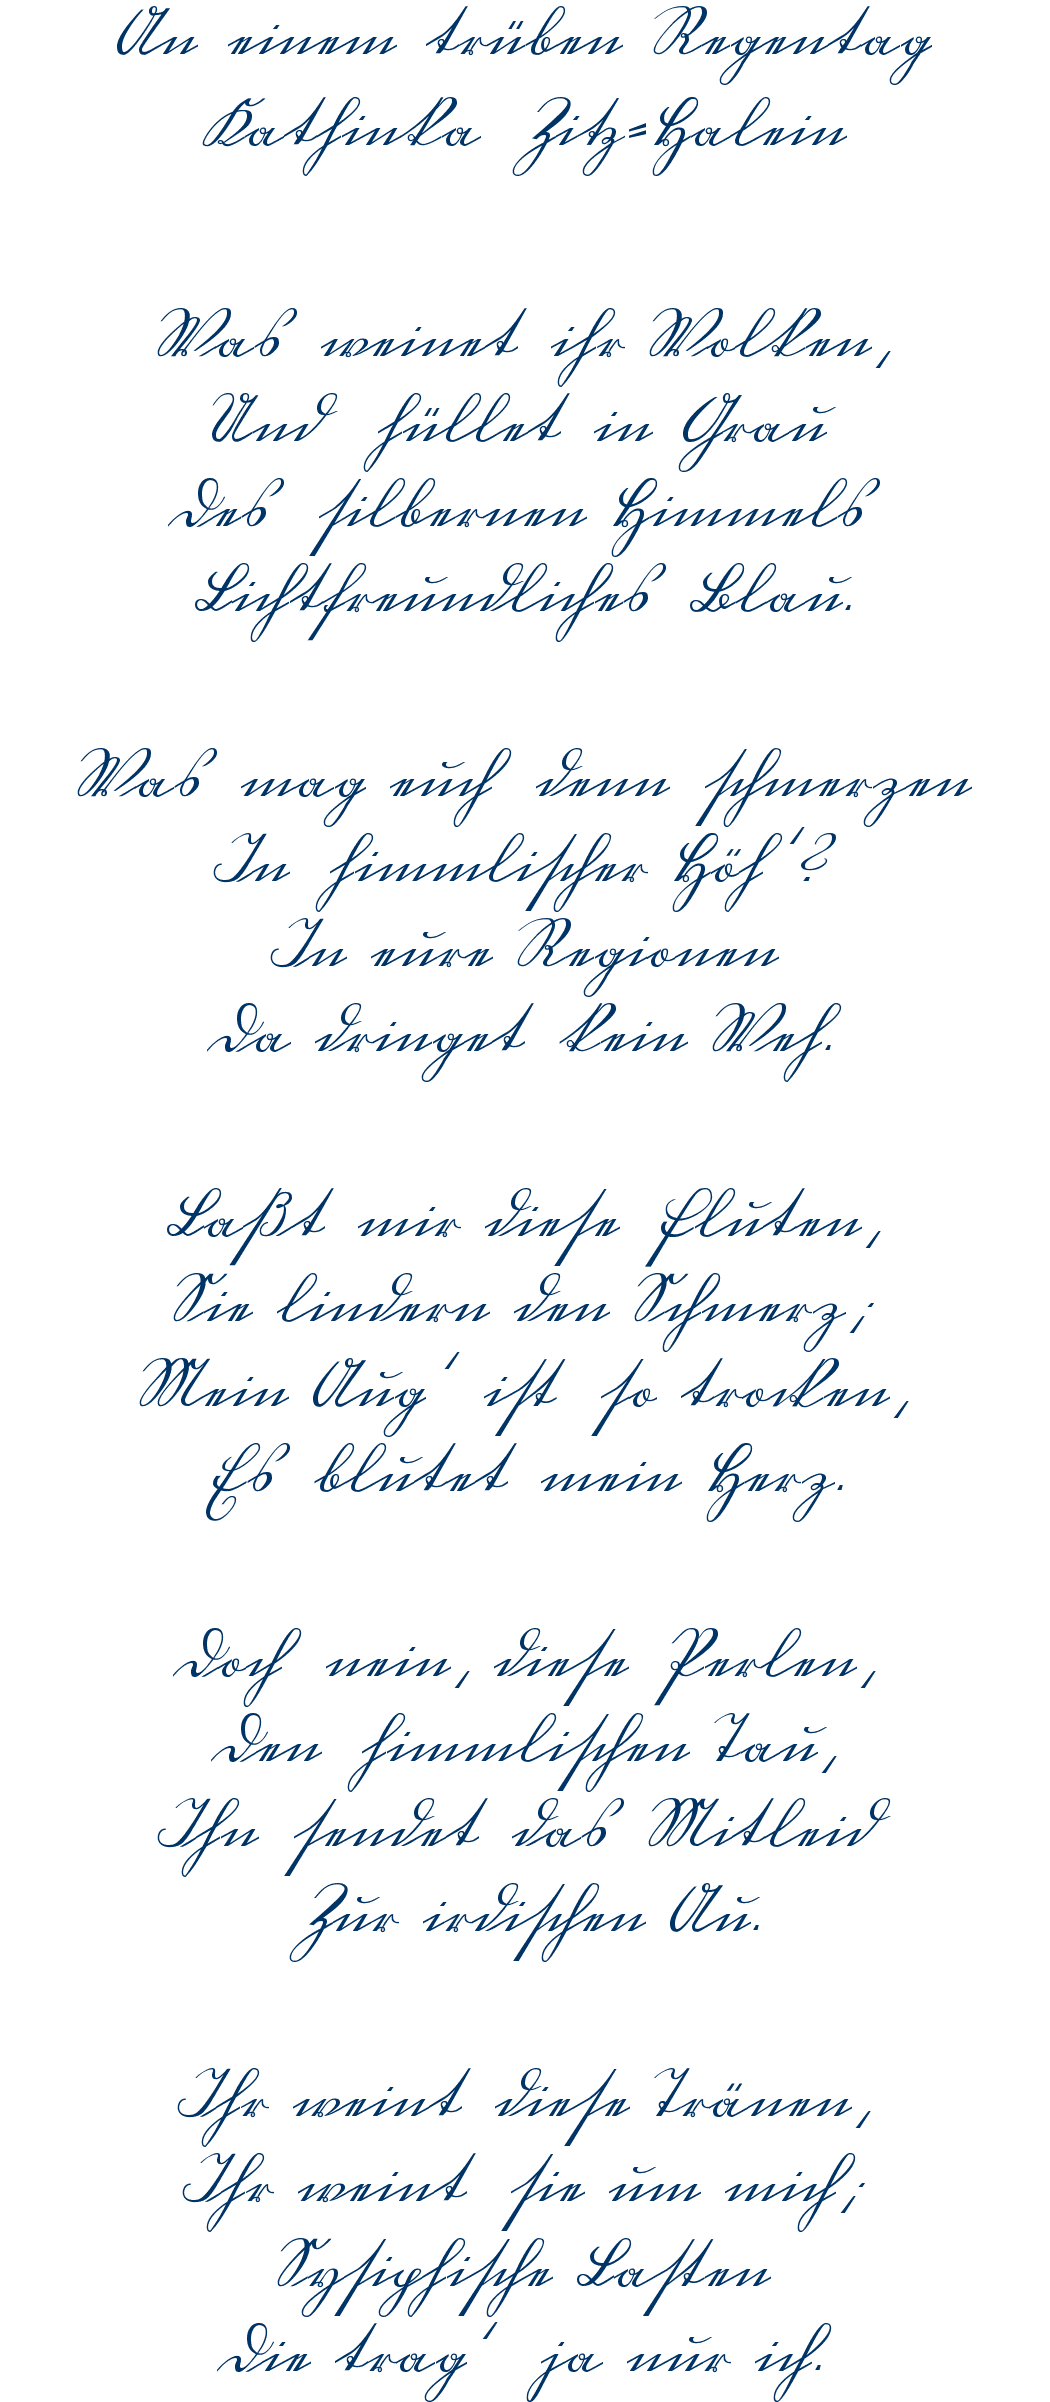 An einem trüben Regentag
Kathinka Zitz=Halein
Was weinet ihr Wolken,
Und hüllet in Grau
Des silbernen Himmels
Lichtfreundliches Blau.
Was mag euch denn schmerzen
In himmlischer Höh'?
In eure Regionen
Da dringet kein Weh.
Laßt mir diese Fluten,
Sie lindern den Schmerz;
Mein Aug' ist so trocken,
Es blutet mein Herz.
Doch nein, diese Perlen,
Den himmlischen Tau,
Ihn sendet das Mitleid
Zur irdischen Au.
Ihr weint diese Tränen,
Ihr weint sie um mich;
Sysiphische Lasten
Die trag' ja nur ich.